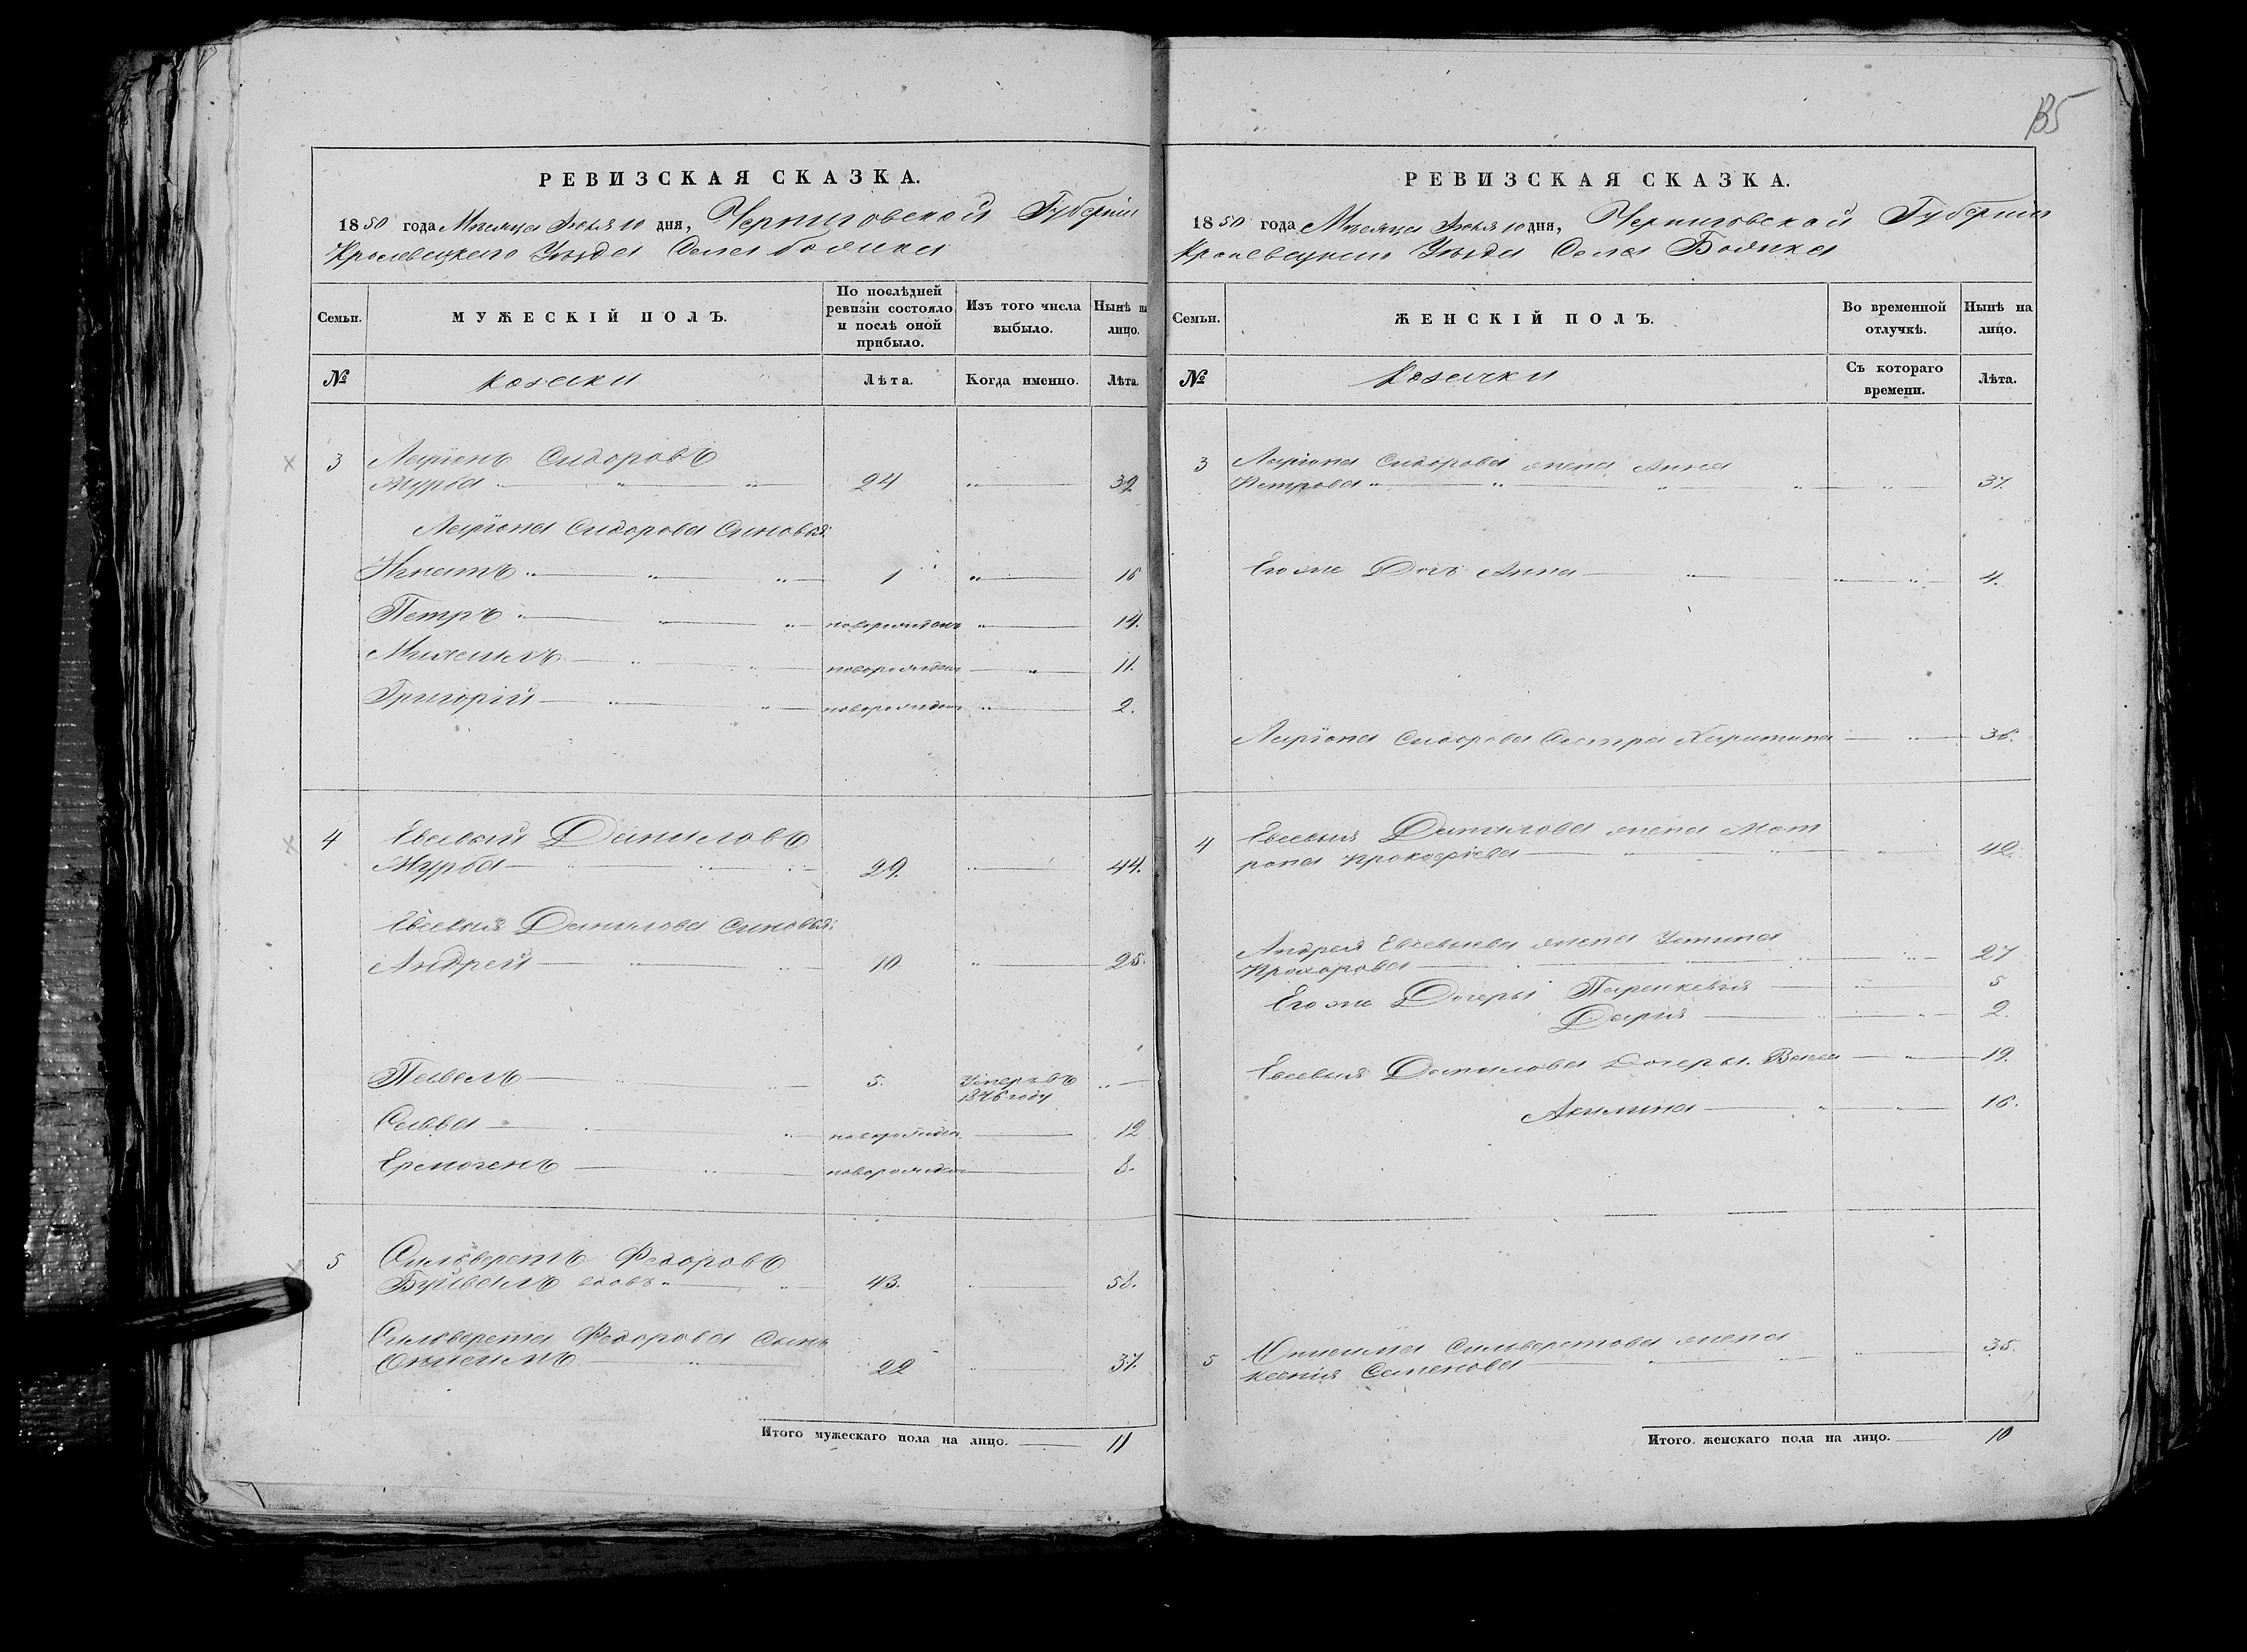 135
РЕВИЗСКАЯ СКАЗКА.
1850 года Мѣсяца Июля 10 дня, Черниговской Губерніи
Кролевецкого Уѣзда Села Бояика
Семьи.
МУЖЕСКІЙ ПОЛЪ.
По послѣдней ревизіи состояло и послѣ оной прибыло.
Изъ того числа выбыло.
Нынѣ на лицо.
№
козаки
Лѣта.
Когда именно.
Лѣта.
3 Ларіонъ Сидоровъ
Журба 24 39.
Ларіона Сидорова Синовья:
Игнатъ 1 16
Петръ новорожден 14.
Михаилъ новорожден 11.
Григорій новорожден 2.
4 Евсевий Даниловъ
Журба 29. 44.
Евсевия Данилова Синовья:
Андрей 10 25.
Павелъ 5. Умеръ въ
1846 году
Савва новорожден 12
Ермогенъ новорожден 8.
5 Сильверстъ Федоровъ
вдовъ 43. 58.
Сильверста Федорова Сынъ
Онисимъ 22 37.
Итого мужескаго пола на лицо. 11
РЕВИЗСКАЯ СКАЗКА.
1850 года Мѣсяца Июля 10 дня, Черниговской Губерніи
Кролевецкого Уѣзда Села
Семьи.
ЖЕНСКІЙ ПОЛЪ.
Во временной отлучкѣ.
Нынѣ на лицо.
№
Козачки
Съ котораго времени.
Лѣта.
3 Ларіона Сидорова жена Анна
Петрова 37.
Его же Дочь Анна 4.
Ларіона Сидорова Сестра Харитина 36.
4 Евсевия Данилова жена Мот
рона Прокофіева 42.
Андрея Евсевиева жена Устина
Прохорова 27
Его же Дочеры Параскевия 5
Дария 2.
Евсевия Данилова Дочеры. Васса 19.
Акилина 16.
5 Онисима Сильверстова жена
Ксения Семенова 35.
Итого женскаго пола на лицо. 10